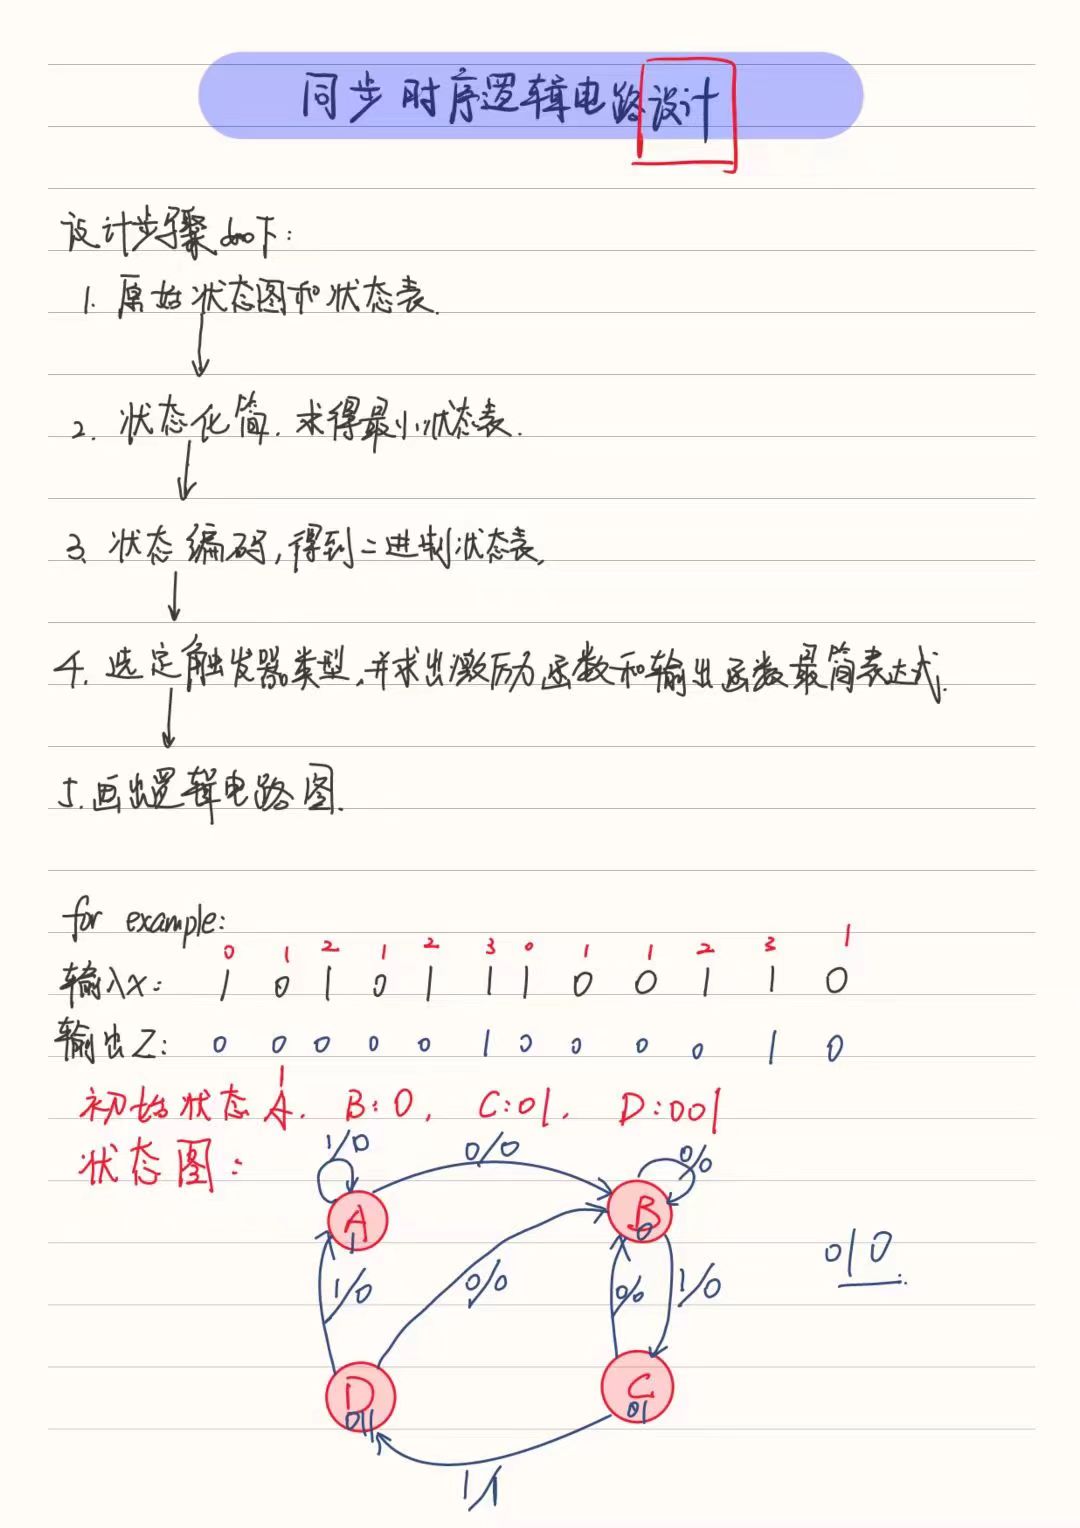 同步时序逻辑电路设计
设计步骤如下:
1. 原始状态图和状态表.
2. 状态化简. 求得最小状态表.
3. 状态编码,得到二进制状态表,
4. 选定触发器类型,并求出激励函数和输出函数最简表达式.
5. 画出逻辑电路图.
for example:
0 1 2 1 2 3 0 1 1 2 3 1
输入x: 1 0 1 0 1 1 1 0 0 1 1 0
输出Z: 0 0 0 0 0 1 0 0 0 0 1 0
1
初始状态A. B:0, C:01, D:001
状态图:
1/0 0/0 0/0
A 1 B 0
1/0 0/0 0/0 1/0 010
D 011 C 01
1/1